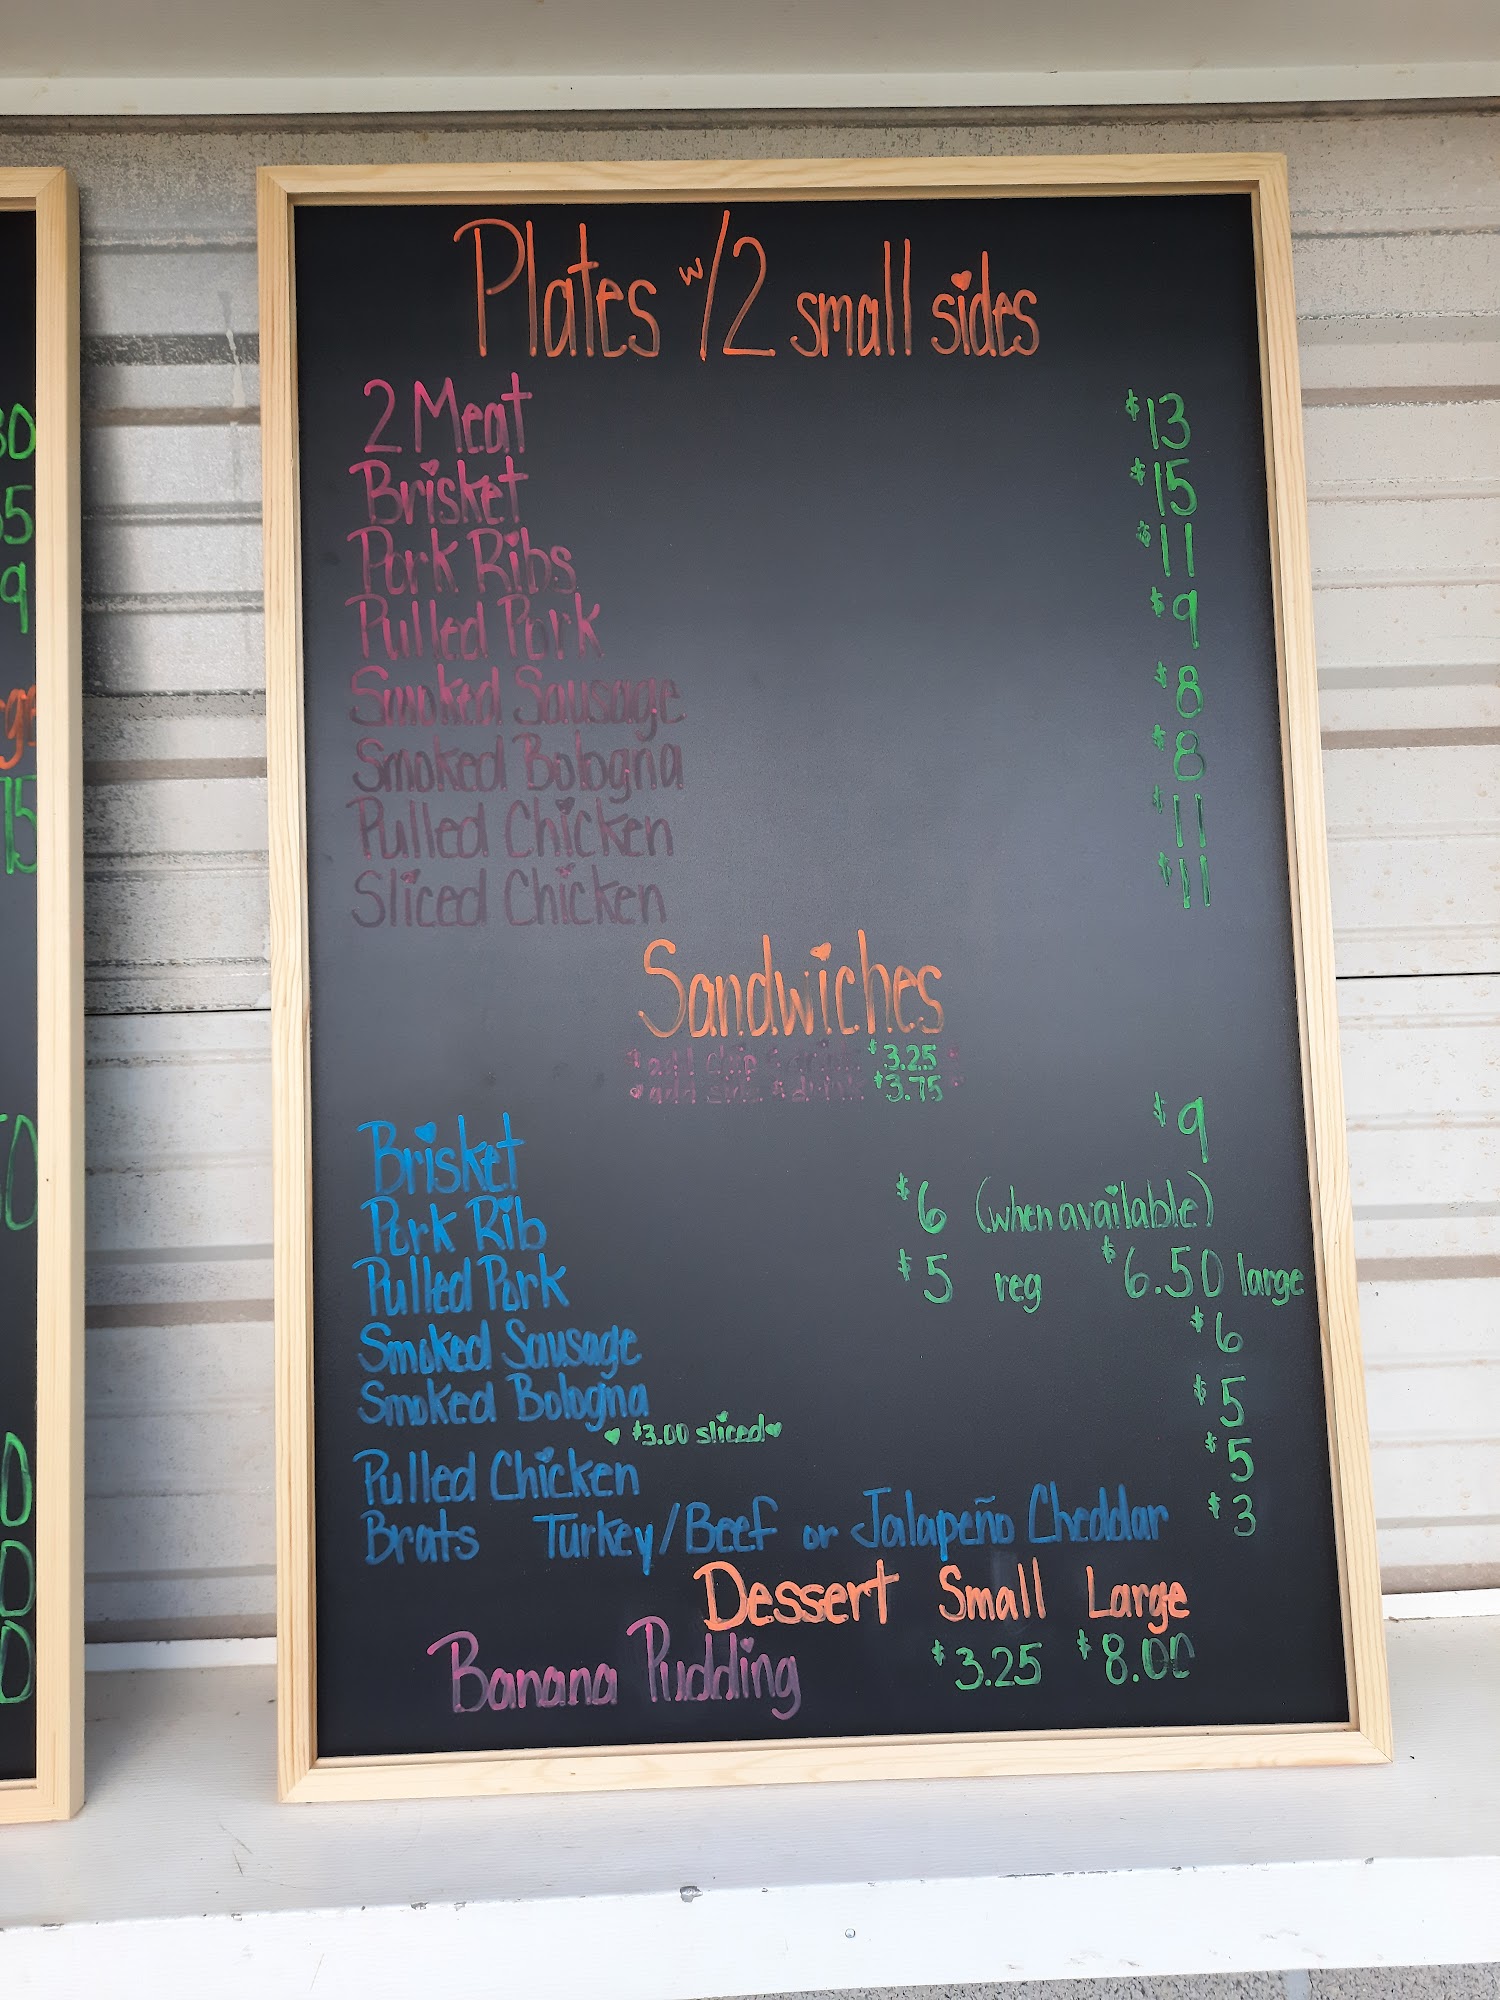 Plates w/2 small sides
2 Meat $13
Brisket $15
Pork Ribs $11
Pulled Pork $9
Smoked Sausage $8
Smoked Bologna $8
Pulled Chicken $11
Sliced Chicken $11
Sandwiches
add chip & drink $3.25
add side & drink $3.75
Brisket $9
Pork Rib $6 (when available)
Pulled Pork $5 reg $6.50 large
Smoked Sausage $6
Smoked Bologna $5
$3.00 sliced
Pulled Chicken $5
Brats Turkey/Beef or Jalapeño Cheddar $3
Dessert Small Large
Banana Pudding $3.25 $8.00